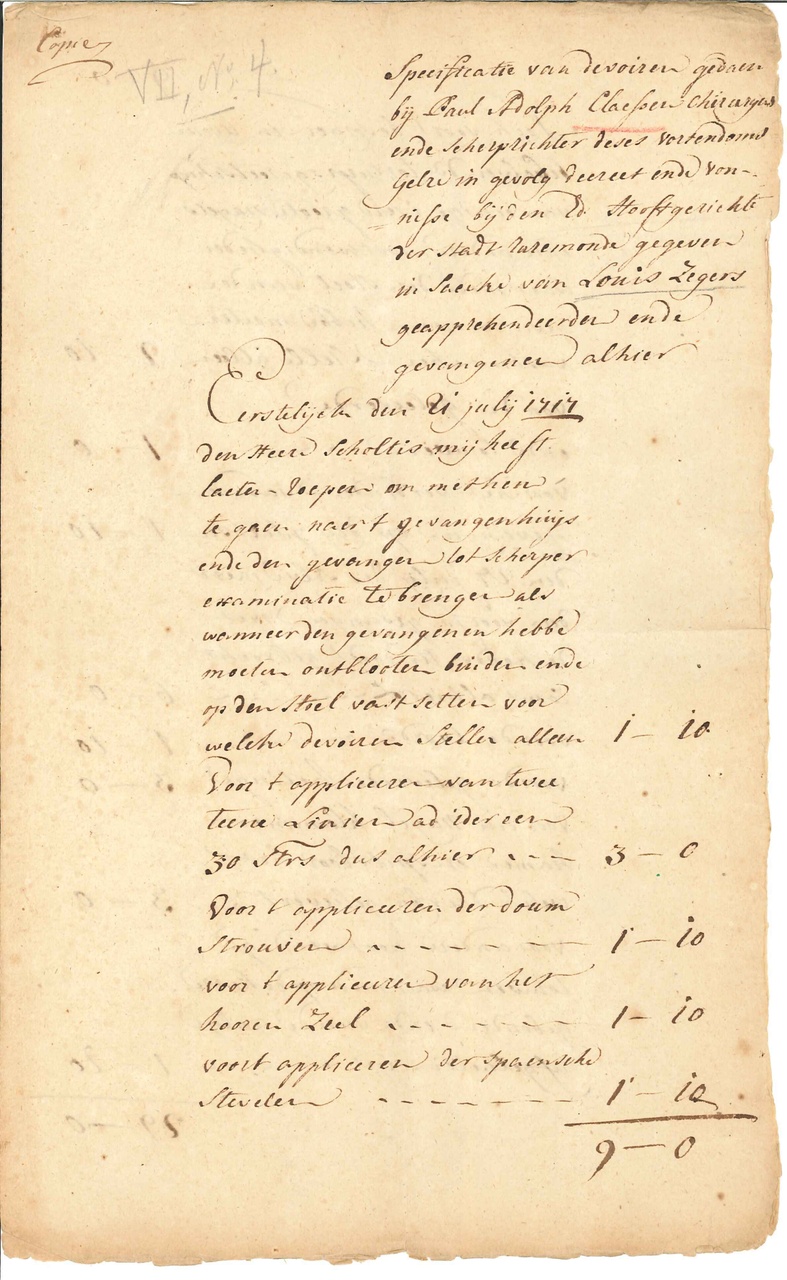 Copie
VII, No. 4.
Specificatie van devoiren gedaen
bij Paul Adolph Claessen Chirurgus
ende Scherprichter deses Vortendoms
Gelre in gevolg decreet ende von-
nisse bij den Ed. Hooftgerichte
der stadt Ruremonde gegeven
in saecke van Louis Zegers
geapprehendeerden ende
gevangenen alhier
Eerstelijck den 21 julij 1717
den Heere Scholtis mij heeft
laeten roepen om met hem
te gaen naer t gevangenhuijs
ende den gevangen tot scherper
examinatie te brengen als
wanneer den gevangenen hebbe
moeten ontblooten binden ende
op den stoel vast setten voor
welcke devoiren stelle alleen 1 - 10
Voor t appliceeren van twee
teene ad ider een
30 Strs dus alhier - - - 3 - 0
Voor t appliceeren der doum
strouven - - - - - - 1 - 10
voor t appliceeren van het
hooren Zeel - - - - - - 1 - 10
voort appliceren der spaensche
stevelen - - - - - - 1 - 10
9 - 0